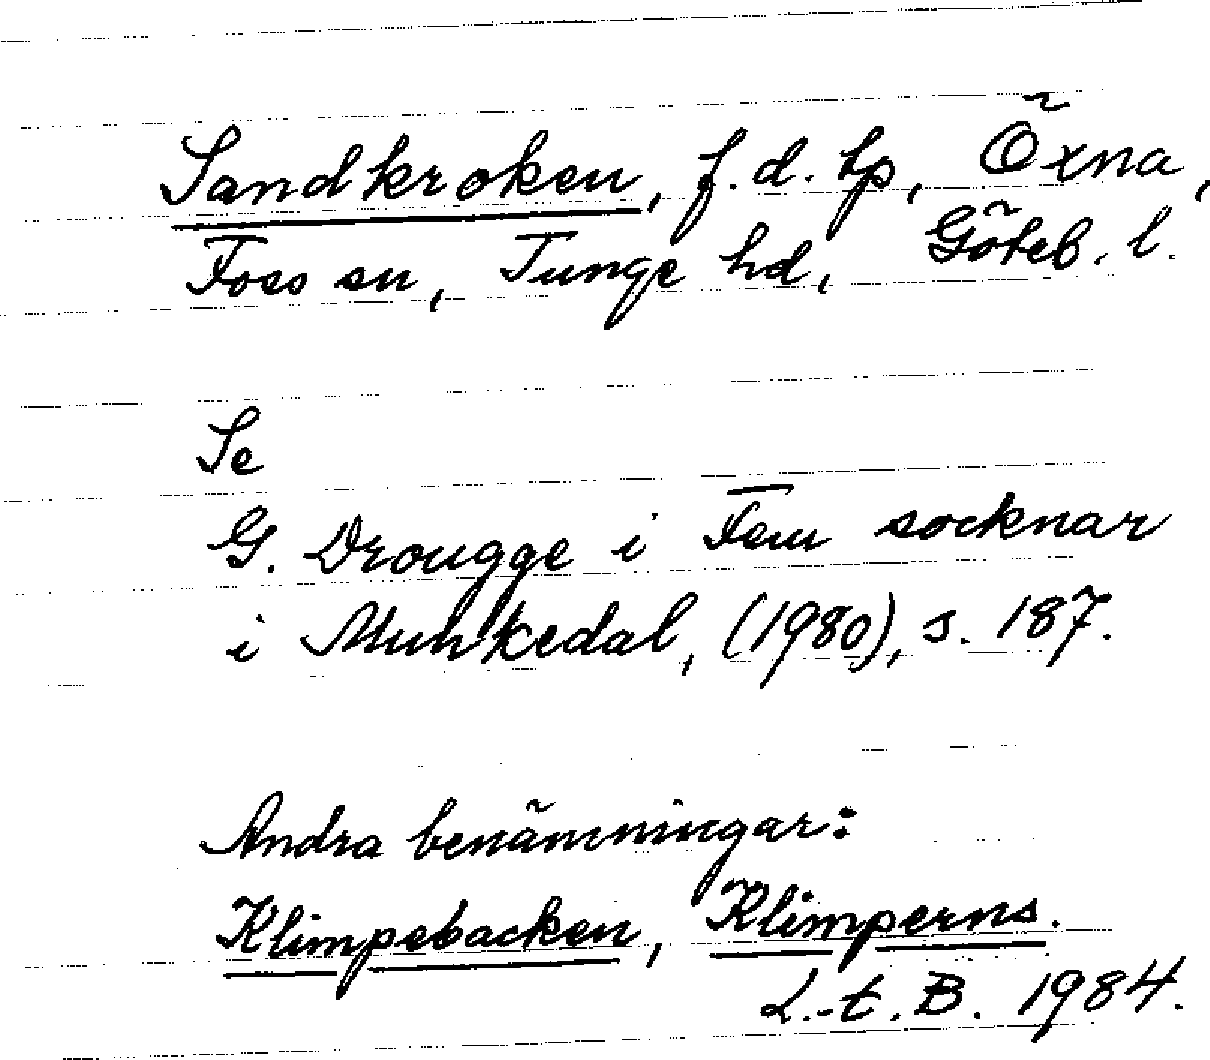 Sandkroken, f.d. tp, Öxna,
Foss sn, Tunge hd, Göteb. l.
Se
G. Drougge i Fem socknar
i Munkedal, (1980), s. 187.
Andra benämningar:
Klimpebacken, Klimperns.
L.-t. B. 1984.